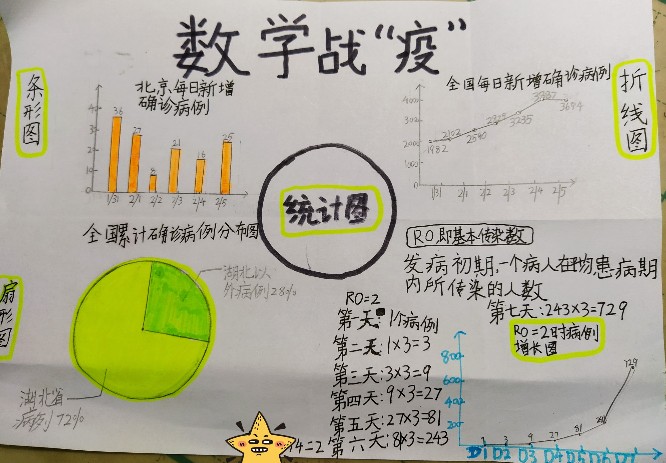 数学战“疫”
条形图
北京每日新增
确诊病例
40
30
20
10
0
36
27
8
21
16
25
1/31
2/1
2/2
2/3
2/4
2/5
全国每日新增确诊病例
4000
3000
2000
1000
0
1982
2102
2590
3235
3694
1/31
2/1
2/2
2/3
2/4
2/5
折线图
统计图
全国累计确诊病例分布图
湖北以
外病例28%
湖北省
病例72%
扇形图
R0即基本传染数
发病初期,一个病人在均患病期
内所传染的人数
R0=2
第一天:1个病例
第二天:1×3=3
第三天:3×3=9
第四天:9×3=27
第五天:27×3=81
第六天:8×3=243
第七天:243×3=729
R0=2时病例
增长图
800
600
400
200
1
3
9
27
81
729
D1 D2 D3 D4 D5 D6 D7